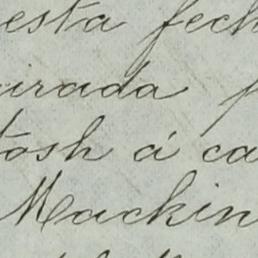 esta fech
irada p
tosh á ca
Mackin